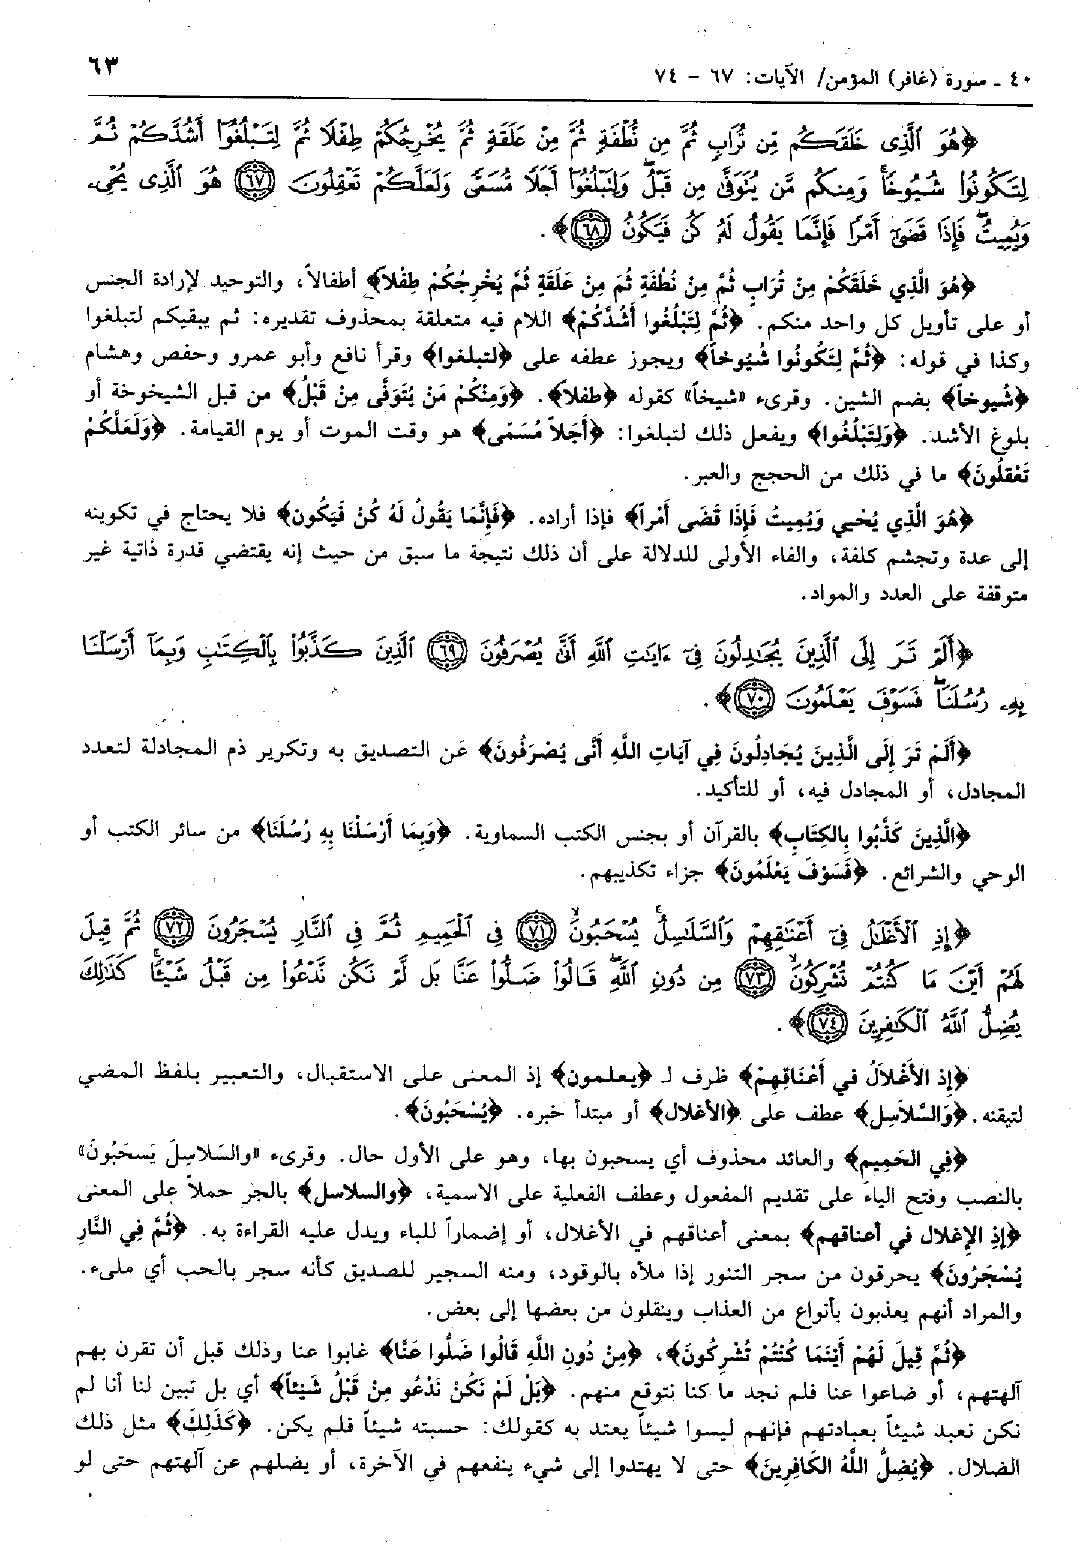 ٤٠ ـ سورة (غافر) المؤمن/ الآيات: ٦٧ - ٧٤
٦٣
﴿هُوَ ٱلَّذِى خَلَقَكُم مِّن تُرَابٍ ثُمَّ مِن نُّطْفَةٍ ثُمَّ مِنْ عَلَقَةٍ ثُمَّ يُخْرِجُكُمْ طِفْلًا ثُمَّ لِتَبْلُغُوٓا۟ أَشُدَّكُمْ ثُمَّ
لِتَكُونُوا۟ شُيُوخًا ۚ وَمِنكُم مَّن يُتَوَفَّىٰ مِن قَبْلُ ۖ وَلِتَبْلُغُوٓا۟ أَجَلًا مُّسَمًّى وَلَعَلَّكُمْ تَعْقِلُونَ ﴿٦٧﴾ هُوَ ٱلَّذِى يُحْىِۦ
وَيُمِيتُ ۖ فَإِذَا قَضَىٰٓ أَمْرًا فَإِنَّمَا يَقُولُ لَهُۥ كُن فَيَكُونُ ﴿٦٨﴾﴾.
﴿هُوَ الَّذِي خَلَقَكُمْ مِنْ تُرَابٍ ثُمَّ مِنْ نُطْفَةٍ ثُمَ مِنْ عَلَقَةٍ ثُمَّ يُخْرِجُكُمْ طِفْلاً﴾ أطفالاً، والتوحيد لإرادة الجنس
أو على تأويل كل واحد منكم. ﴿ثُمَّ لِتَبْلُغُوا أَشُدَّكُمْ﴾ اللام فيه متعلقة بمحذوف تقديره: ثم يبقيكم لتبلغوا
وكذا في قوله: ﴿ثُمَّ لِتَكُونُوا شُيُوخاً﴾ ويجوز عطفه على ﴿لتبلغوا﴾ وقرأ نافع وأبو عمرو وحفص وهشام
﴿شُيوخاً﴾ بضم الشين. وقرىء «شيخاً» كقوله ﴿طفلاً﴾. ﴿وَمِنْكُمْ مَنْ يُتَوَفَّى مِنْ قَبْلُ﴾ من قبل الشيخوخة أو
بلوغ الأشد. ﴿وَلِتَبْلُغُوا﴾ ويفعل ذلك لتبلغوا: ﴿أَجَلاً مُسَمّى﴾ هو وقت الموت أو يوم القيامة. ﴿وَلَعَلَّكُمْ
تَعْقِلُونَ﴾ ما في ذلك من الحجج والعبر.
﴿هُوَ الَّذِي يُحْيي وَيُمِيتُ فَإِذَا قَضَى أَمْراً﴾ فإذا أراده. ﴿فَإِنَّمَا يَقُولُ لَهُ كُنْ فَيَكُون﴾ فلا يحتاج في تكوينه
إلى عدة وتجشم كلفة، والفاء الأولى للدلالة على أن ذلك نتيجة ما سبق من حيث إنه يقتضي قدرة ذاتية غير
متوقفة على العدد والمواد.
﴿أَلَمْ تَرَ إِلَى ٱلَّذِينَ يُجَٰدِلُونَ فِىٓ ءَايَٰتِ ٱللَّهِ أَنَّىٰ يُصْرَفُونَ ﴿٦٩﴾ ٱلَّذِينَ كَذَّبُوا۟ بِٱلْكِتَٰبِ وَبِمَآ أَرْسَلْنَا
بِهِۦ رُسُلَنَا ۖ فَسَوْفَ يَعْلَمُونَ ﴿٧٠﴾﴾.
﴿أَلَمْ تَرَ إِلَى الَّذِينَ يُجَادِلُونَ فِي آيَاتِ اللَّهِ أَنَّى يُصْرَفُونَ﴾ عَن التصديق به وتكرير ذم المجادلة لتعدد
المجادل، أو المجادل فيه، أو للتأكيد.
﴿الَّذِينَ كَذَّبُوا بِالكِتَابِ﴾ بالقرآن أو بجنس الكتب السماوية. ﴿وَبِمَا أَرْسَلْنَا بِهِ رُسُلَنَا﴾ من سائر الكتب أو
الوحي والشرائع. ﴿فَسَوْفَ يَعْلَمُونَ﴾ جزاء تكذيبهم.
﴿إِذِ ٱلْأَغْلَٰلُ فِىٓ أَعْنَٰقِهِمْ وَٱلسَّلَٰسِلُ يُسْحَبُونَ ﴿٧١﴾ فِى ٱلْحَمِيمِ ثُمَّ فِى ٱلنَّارِ يُسْجَرُونَ ﴿٧٢﴾ ثُمَّ قِيلَ
لَهُمْ أَيْنَ مَا كُنتُمْ تُشْرِكُونَ ﴿٧٣﴾ مِن دُونِ ٱللَّهِ ۖ قَالُوا۟ ضَلُّوا۟ عَنَّا بَل لَّمْ نَكُن نَّدْعُوا۟ مِن قَبْلُ شَيْـًٔا ۚ كَذَٰلِكَ
يُضِلُّ ٱللَّهُ ٱلْكَٰفِرِينَ ﴿٧٤﴾﴾.
﴿إِذِ الأَغْلاَلُ في أَعْنَاقِهِمْ﴾ ظرف لـ ﴿يعلمون﴾ إذ المعنى على الاستقبال، والتعبير بلفظ المضي
لتيقنه. ﴿وَالسَّلاَسِل﴾ عطف على ﴿الأغلال﴾ أو مبتدأ خبره. ﴿يُسْحَبُونَ﴾.
﴿فِي الحَمِيمِ﴾ والعائد محذوف أي يسحبون بها، وهو على الأول حال. وقرىء «والسَلاسِلَ يَسحَبُونَ»
بالنصب وفتح الياء على تقديم المفعول وعطف الفعلية على الاسمية، ﴿والسلاسل﴾ بالجر حملاً على المعنى
﴿إِذِ الإغلال في أعناقهم﴾ بمعنى أعناقهم في الأغلال، أو إضماراً للباء ويدل عليه القراءة به. ﴿ثُمَّ فِي النَّارِ
يُسْجَرُونَ﴾ يحرقون من سجر التنور إذا ملأه بالوقود، ومنه السجير للصديق كأنه سجر بالحب أي ملىء.
والمراد أنهم يعذبون بأنواع من العذاب وينقلون من بعضها إلى بعض.
﴿ثُمَّ قِيلَ لَهُمْ أَيْنَمَا كُنْتُمْ تُشْرِكُونَ﴾، ﴿مِنْ دُونِ اللَّهِ قَالُوا ضَلُّوا عَنَّا﴾ غابوا عنا وذلك قبل أن تقرن بهم
آلهتهم، أو ضاعوا عنا فلم نجد ما كنا نتوقع منهم. ﴿بَلْ لَمْ نَكُنْ نَدْعُو مِنْ قَبْلُ شَيْئاً﴾ أي بل تبين لنا أنا لم
نكن نعبد شيئاً بعبادتهم فإنهم ليسوا شيئاً يعتد به كقولك: حسبته شيئاً فلم يكن. ﴿كَذَلِكَ﴾ مثل ذلك
الضلال. ﴿يُضِلُّ اللَّهُ الكَافِرِينَ﴾ حتى لا يهتدوا إلى شيء ينفعهم في الآخرة، أو يضلهم عن آلهتهم حتى لو